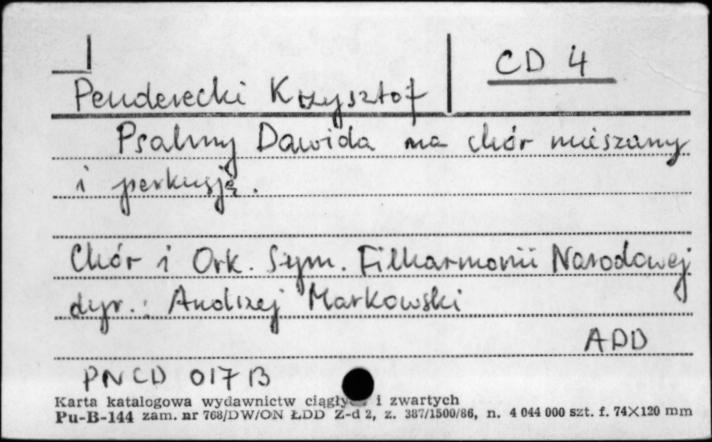 CD 4
Penderecki Krzysztof
Psalmy Dawida na chór mieszany
i perkusję.
Chór i Ork. Sym. Filharmonii Narodowej
dyr.: Andrzej Markowski
ADD
PNCD 017 B
Karta katalogowa wydawnictw i zwartych
Pu-B-144 zam. nr 768/DW/ON ŁDD Z-d 2, z. 387/1500/86, n. 4 044 000 szt. f. 74X120 mm